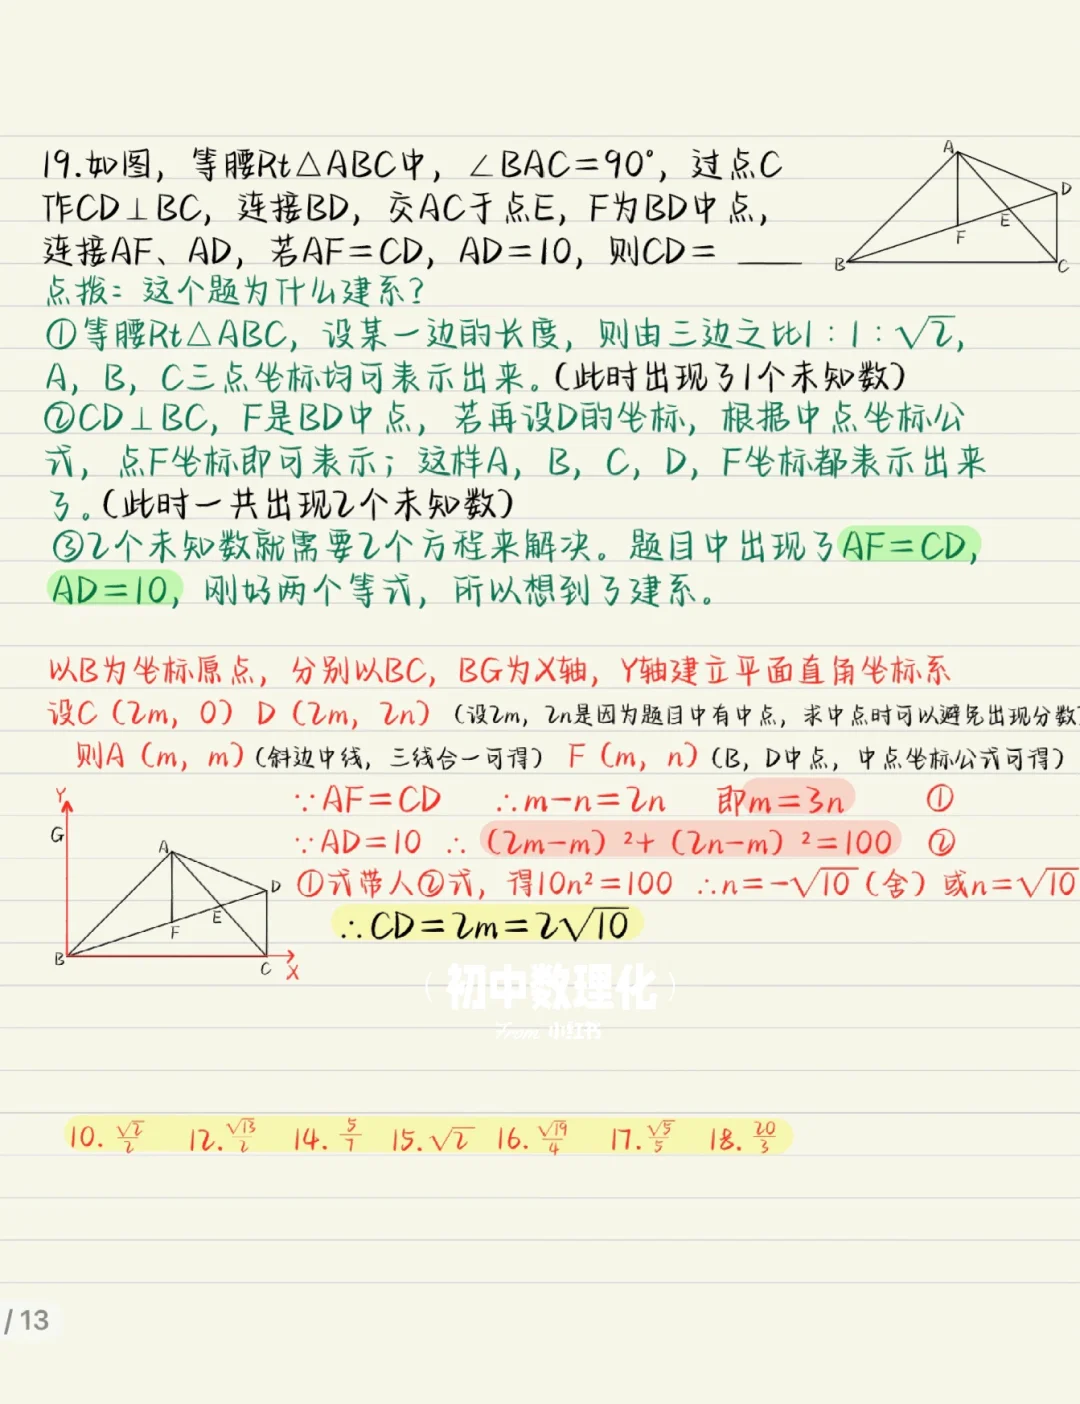 19.如图，等腰Rt△ABC中，∠BAC=90°，过点C
作CD⊥BC，连接BD，交AC于点E，F为BD中点，
连接AF、AD，若AF=CD，AD=10，则CD= ____
A
D
E
F
B
C
点拨：这个题为什么建系？
①等腰Rt△ABC，设某一边的长度，则由三边之比1：1：√2，
A，B，C三点坐标均可表示出来。(此时出现了1个未知数)
②CD⊥BC，F是BD中点，若再设D的坐标，根据中点坐标公
式，点F坐标即可表示；这样A，B，C，D，F坐标都表示出来
了。(此时一共出现2个未知数)
③2个未知数就需要2个方程来解决。题目中出现了AF=CD，
AD=10，刚好两个等式，所以想到了建系。
以B为坐标原点，分别以BC，BG为X轴，Y轴建立平面直角坐标系
设C（2m，0）D（2m，2n）（设2m，2n是因为题目中有中点，求中点时可以避免出现分数）
则A（m，m）（斜边中线，三线合一可得）F（m，n）（B，D中点，中点坐标公式可得）
∵AF=CD ∴m-n=2n 即m=3n ①
∵AD=10 ∴（2m-m）²+（2n-m）²=100 ②
①式带人②式，得10n²=100 ∴n=-√10（舍）或n=√10
∴CD=2m=2√10
Y
G
A
D
E
F
B
C
X
（初中数理化）
From 小红书
10. √2/2 12. √13/2 14. 5/7 15. √2 16. √19/4 17. √5/5 18. 20/3
/ 13